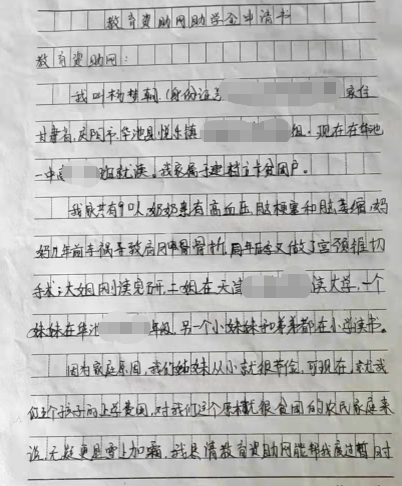 教育资助网助学金申请书
教育资助网：
我叫杨梦 (身份证号 家住
甘肃省庆阳市华池县悦乐镇 组。现在在华池
一中高 班就读，我家属于建档立卡贫困户。
我家共有9口人，奶奶患有高血压，脑梗塞和脑萎缩，妈
妈几年前车祸导致肩胛骨骨折，同年后又做了宫颈锥切
手术；大姐刚读完研，二姐在天津 读大学，一个
妹妹在华池 年级，另一个小妹妹和弟弟都在小学读书。
因为家庭原因，我们姊妹从小就很节俭，可现在，就我
们五个孩子的上学费用，对我们这个原本就很贫困的农民家庭来
说，无疑更是雪上加霜，我恳请教育资助网能帮我度过暂时